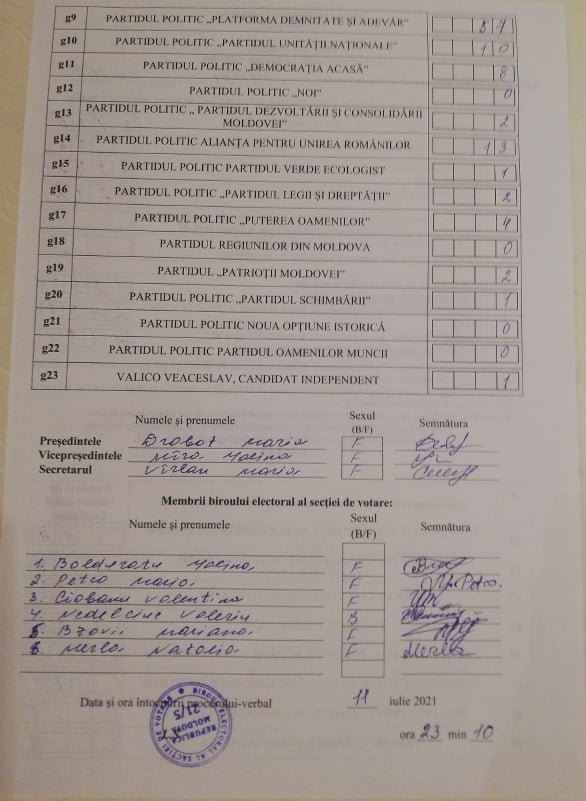 g9 PARTIDUL POLITIC „PLATFORMA DEMNITATE ȘI ADEVĂR"
g10 PARTIDUL POLITIC „PARTIDUL UNITĂȚII NAȚIONALE" 10
g11 PARTIDUL POLITIC „DEMOCRAȚIA ACASĂ" 8
g12 PARTIDUL POLITIC „NOI" 0
g13 PARTIDUL POLITIC „ PARTIDUL DEZVOLTĂRII ȘI CONSOLIDĂRII
MOLDOVEI" 2
g14 PARTIDUL POLITIC ALIANȚA PENTRU UNIREA ROMÂNILOR 13
g15 PARTIDUL POLITIC PARTIDUL VERDE ECOLOGIST 1
g16 PARTIDUL POLITIC „PARTIDUL LEGII ȘI DREPTĂȚII" 2
g17 PARTIDUL POLITIC „PUTEREA OAMENILOR" 4
g18 PARTIDUL REGIUNILOR DIN MOLDOVA 0
g19 PARTIDUL „PATRIOȚII MOLDOVEI" 2
g20 PARTIDUL POLITIC „PARTIDUL SCHIMBĂRII" 1
g21 PARTIDUL POLITIC NOUA OPȚIUNE ISTORICĂ 0
g22 PARTIDUL POLITIC PARTIDUL OAMENILOR MUNCII 0
g23 VALICO VEACESLAV, CANDIDAT INDEPENDENT 1
Numele și prenumele Sexul (B/F) Semnătura
Președintele Drobot Maria F
Vicepreședintele F
Secretarul Vîrlan Maria F
Membrii biroului electoral al secției de votare:
Numele și prenumele Sexul (B/F) Semnătura
1. F
2. Petco Maria F Petco.
3. Ciobanu Valentina F
4. Valeriu B
5. Mariana F
6. Natalia F
Data și ora întocmirii procesului-verbal 11 iulie 2021
ora 23 min 10
BIROUL ELECTORAL AL SECȚIEI DE VOTARE
REPUBLICA MOLDOVA
21/5